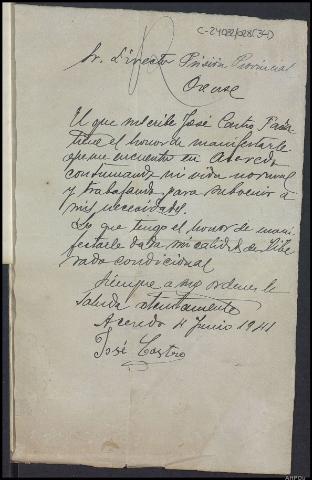 C-24022/028(34)
Sr. Director Prisión Provincial
Orense
El que suscribe José Castro
tiene el honor de manifestarle
que me encuentro en Acevedo
continuando mi vida normal
y trabajando para subvenir a
mis necesidades.
Lo que tengo el honor de mani
festarle dada mi calidad de libe
rado condicional
Siempre a sus ordenes le
saluda atentamente
Acevedo 4 Junio 1941
José Castro
AHPOu